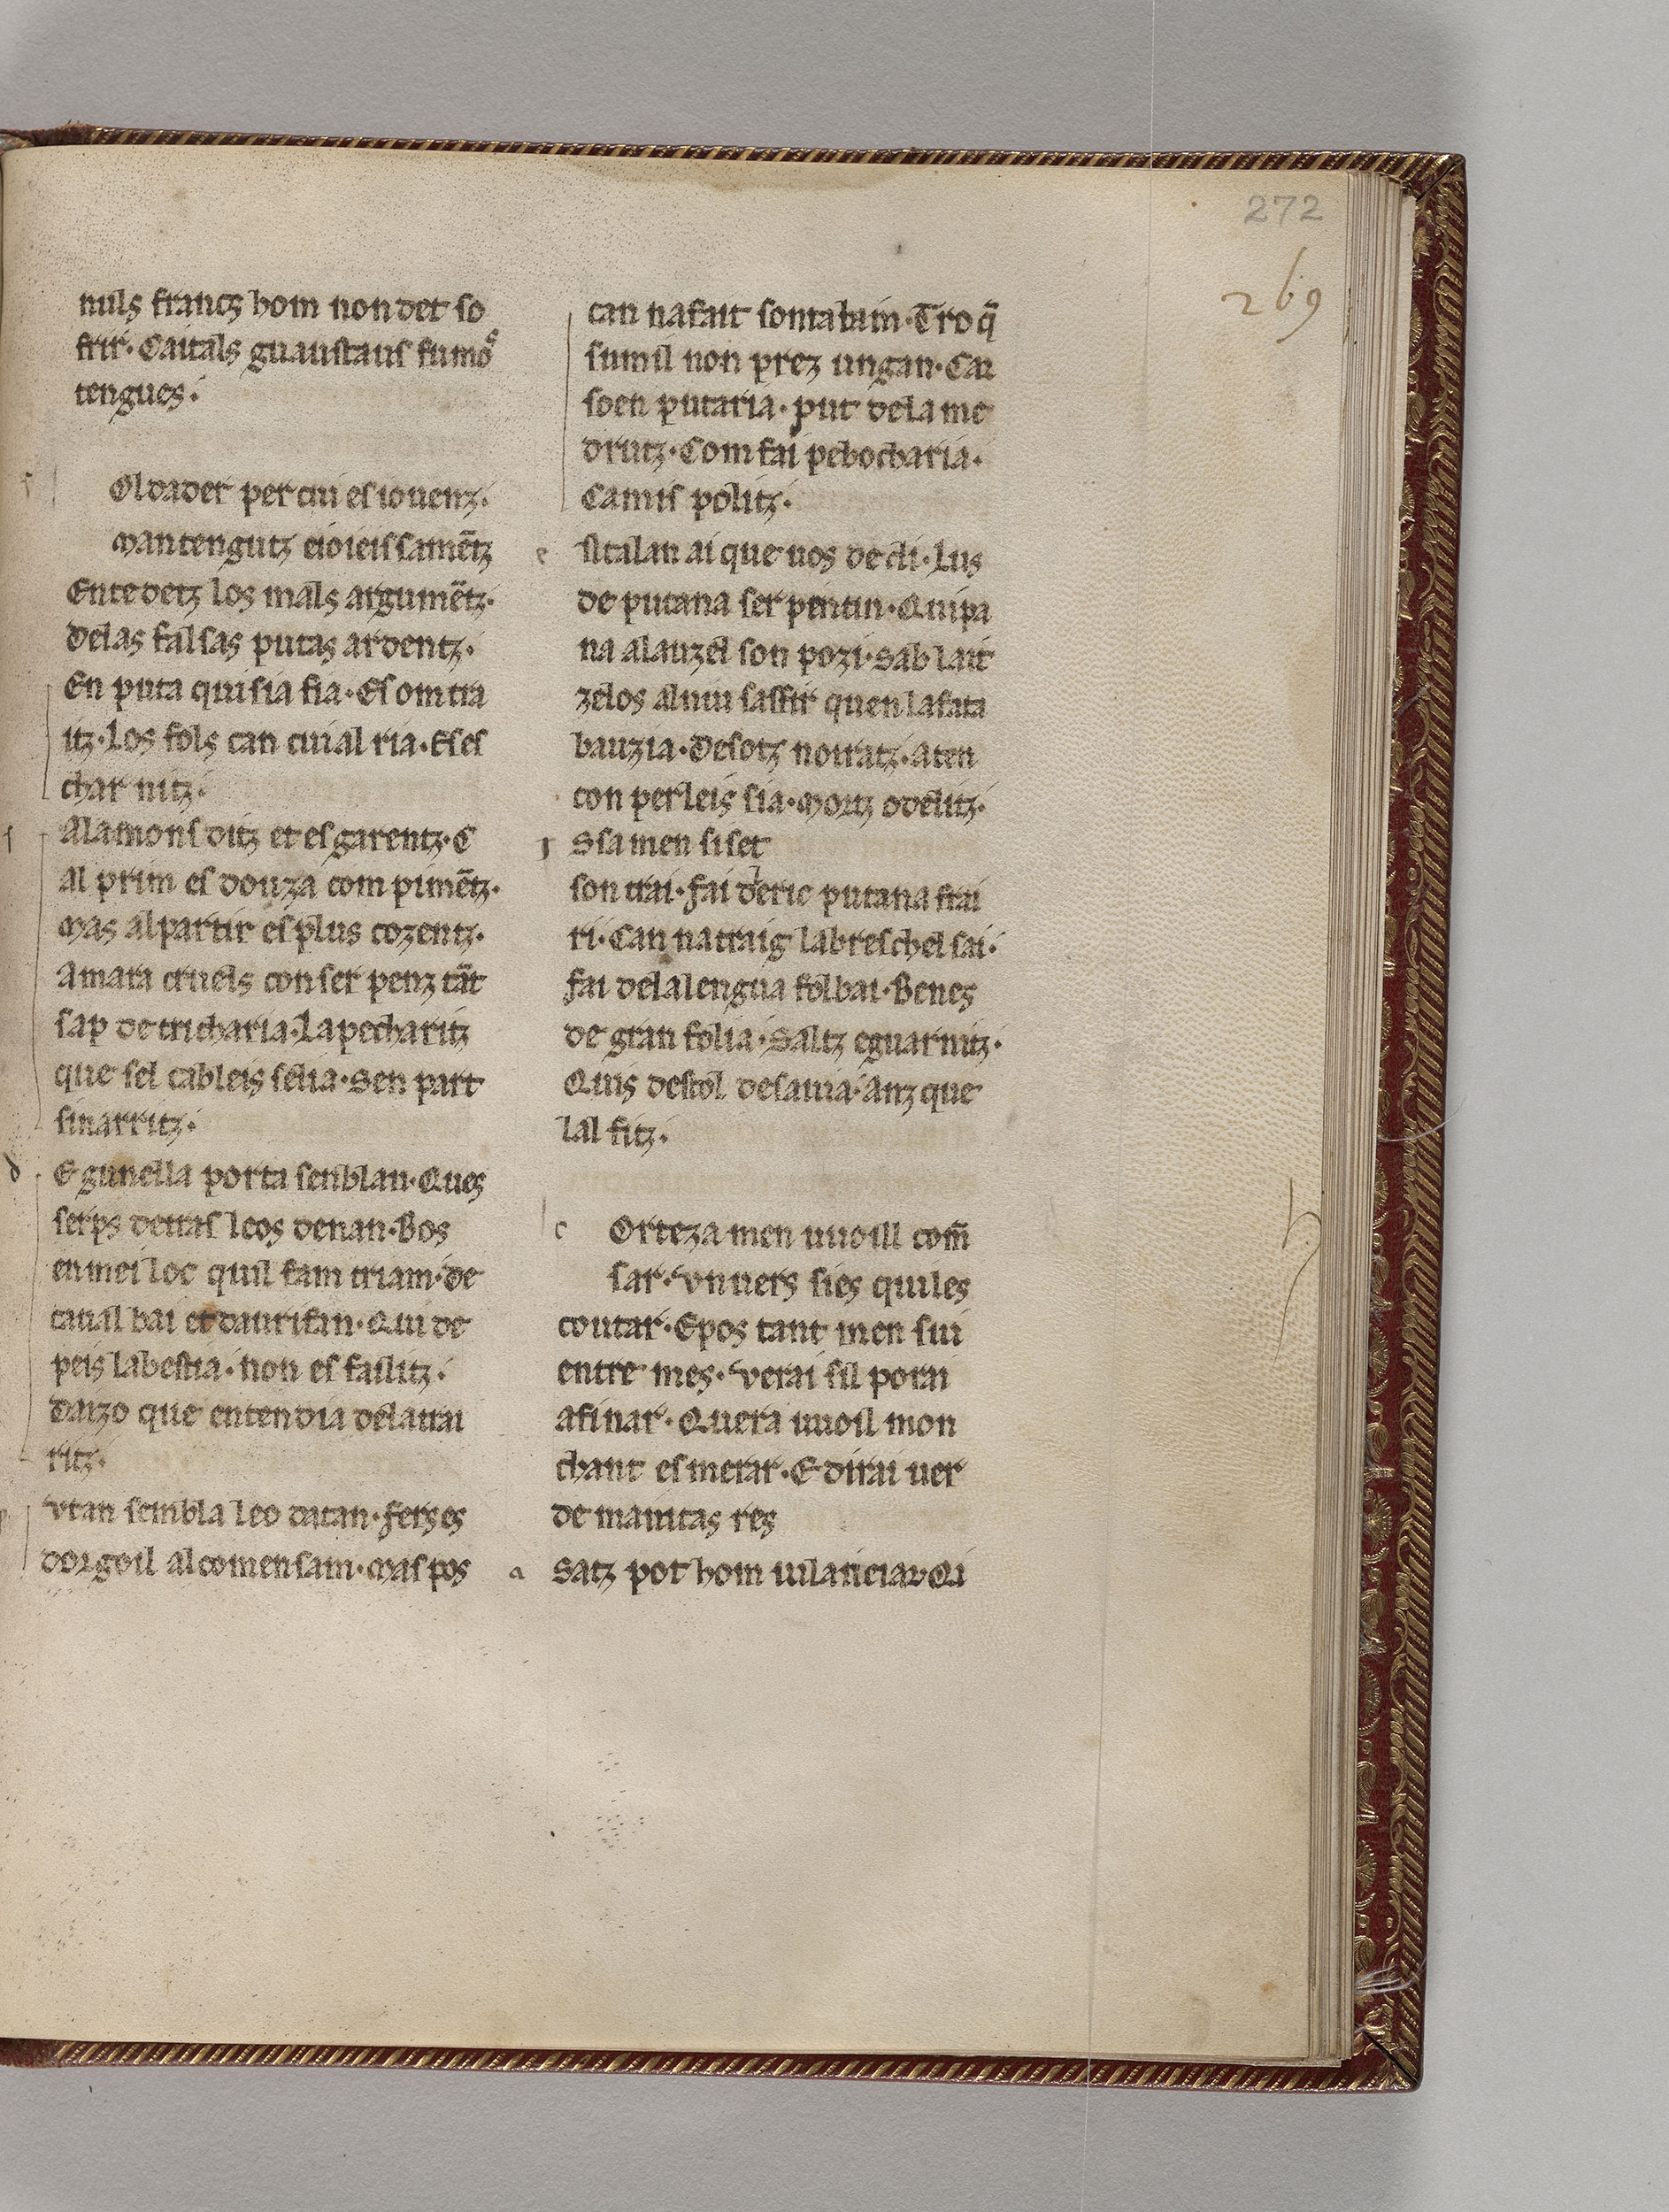 272
269
nuls francs hom non det so
frir. Caitals guaustaus fumos
tengues.
s
Oldader per cui es iouenz.
Mantengutz eioieissamētz
Entedetz los mals argumētz.
Delas falsas putas ardentz.
En puta qui sia fia. Es om tra
itz. Los fols can cuial ria. Eses
char nitz.
s
Alamons ditz et es garentz. C
al prim es douza com pimētz.
Mas alpartir es plus cozentz.
Amara cruels con ser penz tāt
sap de tricharia. La pecharitz
que sel cableis selia. Sen part
sinarritz.
d
E gunella porta senblan. Ques
serps detras leos denan. Bos
en mei loc quil fam triam. de
caual bai et daurifan. Qui de
peis labestia. non es failitz.
Daizo que entendia delauai
ritz.
p
Vtan sembla leo datan. fers es
dorgoil alcomensam. Mas pos
can nafait sontalaim. Tro q̄
sumil non prez ungan. Car
soen putaria. put dela me
drutz. Com fai pebocharia.
Camis politz.
e
sitalan ai que uos de cli. Lus
de putana ser pentin. Qui pa
na alauzel son pozi. Sab lait
zelos aluiu saffir quen lafata
bauzia. Desotz noiratz. aten
con perleis sia. Mortz odelitz.
I
Ssa men siset
son trai. Fai deric putana frai
ri. Can natraig labreschel sai.
fai delalengua folbai. Benes
de gran folia. Saltz eguarnitz.
Quis destol desauia. anz que
lal fitz.
c
Orteza men uuoill com̄
sar. Vn uers sies quiles
coutar. Epos tant men sui
entre mes. Verai sil porai
afinar. Quera uuoil mon
chant es merar. E dirai uer
de maintas res
a
Satz pot hom uilaneiar. Qi